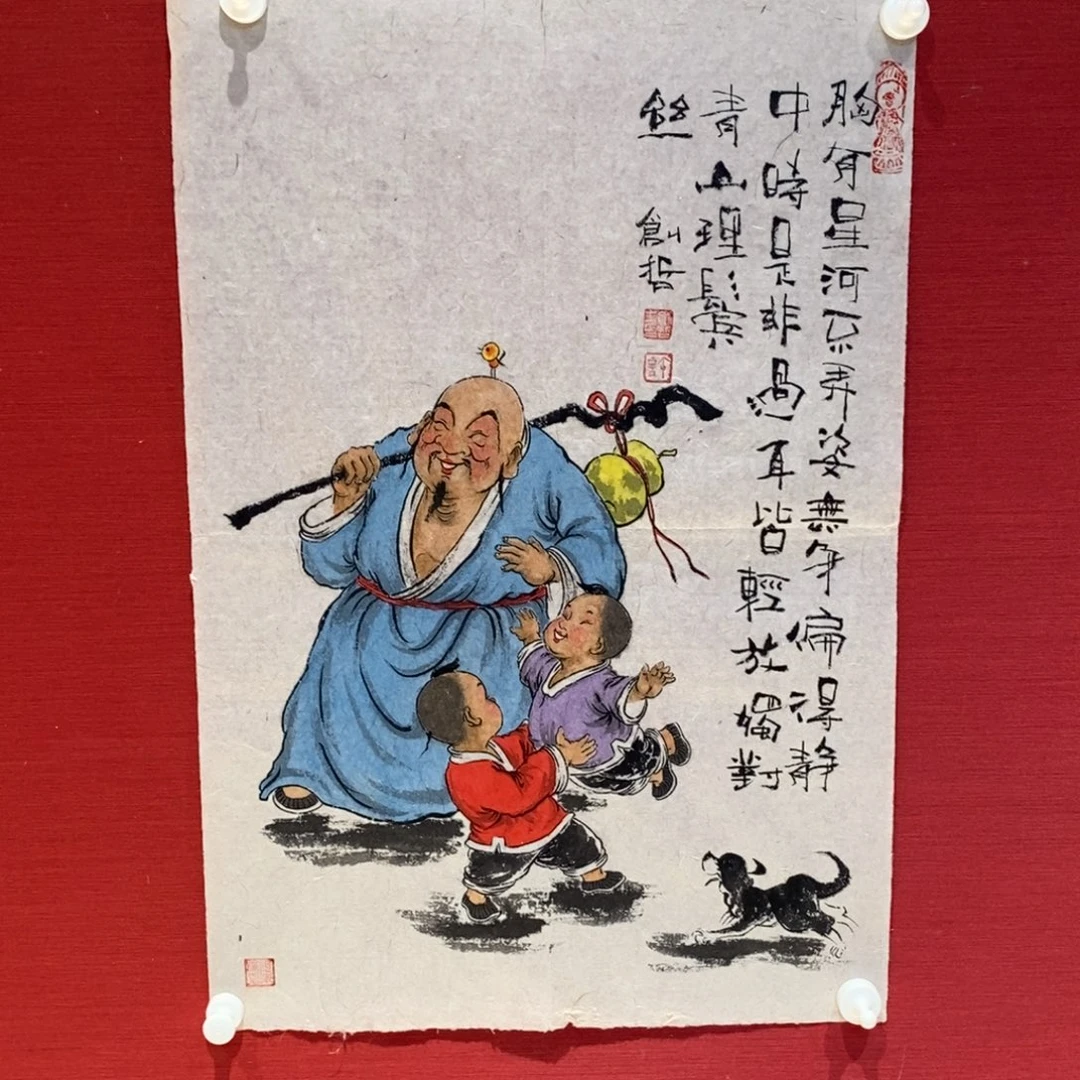 胸有星河不弄姿無争偏得静
中時是非過耳皆輕放獨對
青山理鬢
絲
創哲